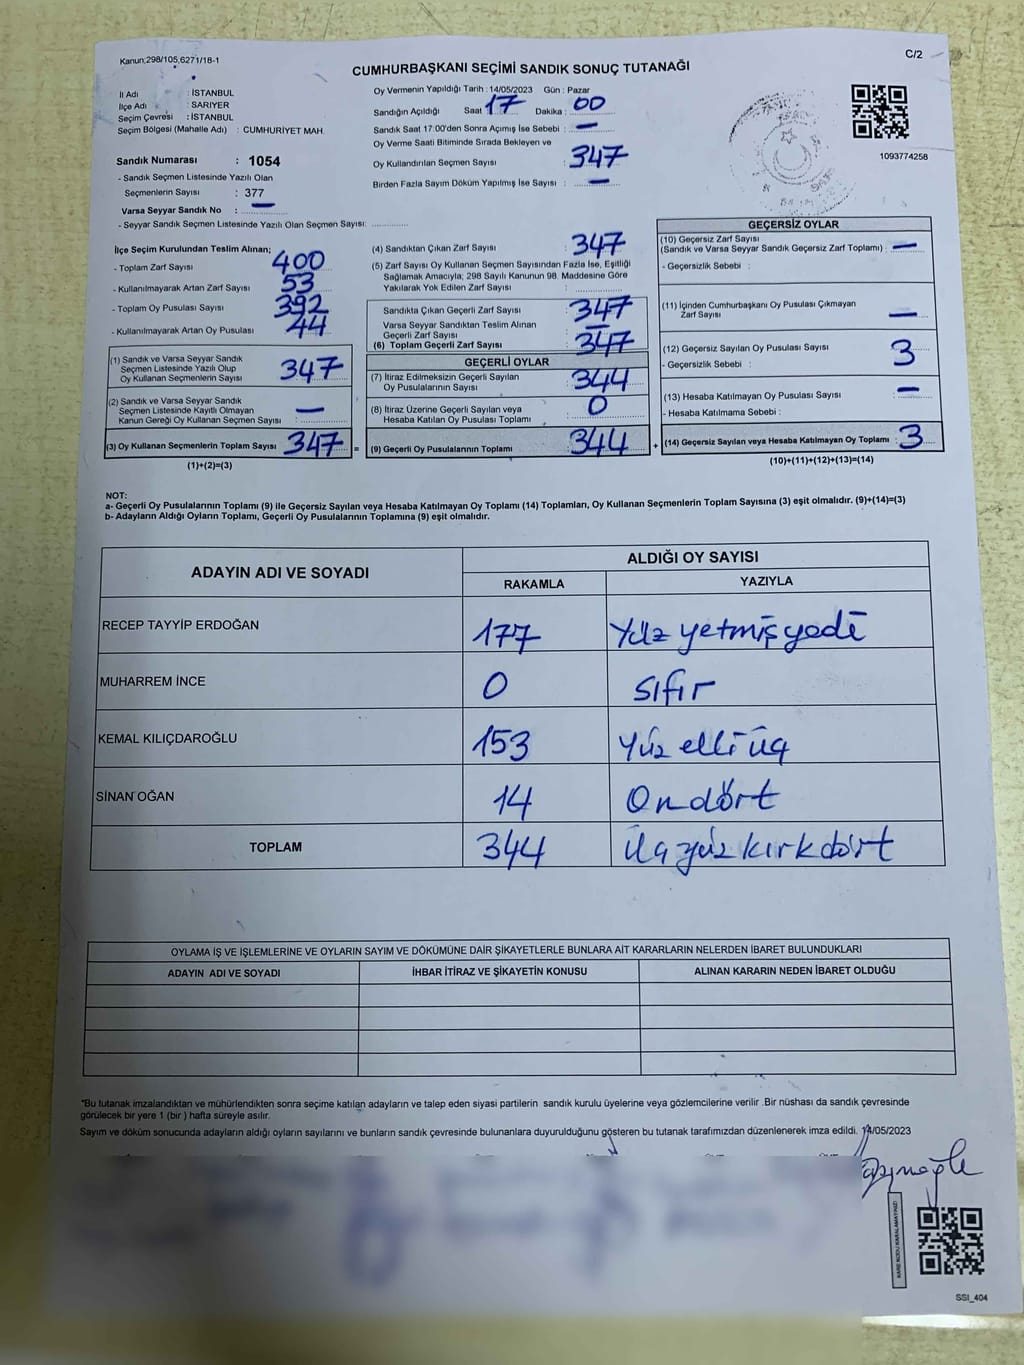 Kanun;298/105,6271/18-1
C/2
CUMHURBAŞKANI SEÇİMİ SANDIK SONUÇ TUTANAĞI
İl Adı : İSTANBUL
İlçe Adı : SARIYER
Seçim Çevresi : İSTANBUL
Seçim Bölgesi (Mahalle Adı) : CUMHURİYET MAH.
Sandık Numarası : 1054
- Sandık Seçmen Listesinde Yazılı Olan
Seçmenlerin Sayısı : 377
Varsa Seyyar Sandık No : —
- Seyyar Sandık Seçmen Listesinde Yazılı Olan Seçmen Sayısı:
Oy Vermenin Yapıldığı Tarih : 14/05/2023 Gün : Pazar
Sandığın Açıldığı Saat : 17 Dakika : 00
Sandık Saat 17:00'den Sonra Açımış İse Sebebi : —
Oy Verme Saati Bitiminde Sırada Bekleyen ve
Oy Kullandırılan Seçmen Sayısı : 347
Birden Fazla Sayım Döküm Yapılmış İse Sayısı : —
1093774258
İlçe Seçim Kurulundan Teslim Alınan;
- Toplam Zarf Sayısı : 400
- Kullanılmayarak Artan Zarf Sayısı : 53
- Toplam Oy Pusulası Sayısı : 392
- Kullanılmayarak Artan Oy Pusulası : 44
(1) Sandık ve Varsa Seyyar Sandık
Seçmen Listesinde Yazılı Olup
Oy Kullanan Seçmenlerin Sayısı : 347
(2) Sandık ve Varsa Seyyar Sandık
Seçmen Listesinde Kayıtlı Olmayan
Kanun Gereği Oy Kullanan Seçmen Sayısı : —
(3) Oy Kullanan Seçmenlerin Toplam Sayısı : 347 =
(1)+(2)=(3)
(4) Sandıktan Çıkan Zarf Sayısı : 347
(5) Zarf Sayısı Oy Kullanan Seçmen Sayısından Fazla İse, Eşitliği
Sağlamak Amacıyla, 298 Sayılı Kanunun 98. Maddesine Göre
Yakılarak Yok Edilen Zarf Sayısı :
Sandıkta Çıkan Geçerli Zarf Sayısı : 347
Varsa Seyyar Sandıktan Teslim Alınan
Geçerli Zarf Sayısı : —
(6) Toplam Geçerli Zarf Sayısı : 347
GEÇERLİ OYLAR
(7) İtiraz Edilmeksizin Geçerli Sayılan
Oy Pusulalarının Sayısı : 344
(8) İtiraz Üzerine Geçerli Sayılan veya
Hesaba Katılan Oy Pusulası Toplamı : 0
(9) Geçerli Oy Pusulalarının Toplamı : 344 +
GEÇERSİZ OYLAR
(10) Geçersiz Zarf Sayısı
(Sandık ve Varsa Seyyar Sandık Geçersiz Zarf Toplamı) : —
- Geçersizlik Sebebi :
(11) İçinden Cumhurbaşkanı Oy Pusulası Çıkmayan
Zarf Sayısı : —
(12) Geçersiz Sayılan Oy Pusulası Sayısı : 3
- Geçersizlik Sebebi :
(13) Hesaba Katılmayan Oy Pusulası Sayısı : —
- Hesaba Katılmama Sebebi :
(14) Geçersiz Sayılan veya Hesaba Katılmayan Oy Toplamı : 3
(10)+(11)+(12)+(13)=(14)
NOT:
a- Geçerli Oy Pusulalarının Toplamı (9) ile Geçersiz Sayılan veya Hesaba Katılmayan Oy Toplamı (14) Toplamları, Oy Kullanan Seçmenlerin Toplam Sayısına (3) eşit olmalıdır. (9)+(14)=(3)
b- Adayların Aldığı Oyların Toplamı, Geçerli Oy Pusulalarının Toplamına (9) eşit olmalıdır.
ADAYIN ADI VE SOYADI ALDIĞI OY SAYISI
RAKAMLA YAZIYLA
RECEP TAYYİP ERDOĞAN 177 Yüz yetmiş yedi
MUHARREM İNCE 0 Sıfır
KEMAL KILIÇDAROĞLU 153 Yüz elli üç
SİNAN OĞAN 14 On dört
TOPLAM 344 Üç yüz kırk dört
OYLAMA İŞ VE İŞLEMLERİNE VE OYLARIN SAYIM VE DÖKÜMÜNE DAİR ŞİKAYETLERLE BUNLARA AİT KARARLARIN NELERDEN İBARET BULUNDUKLARI
ADAYIN ADI VE SOYADI İHBAR İTİRAZ VE ŞİKAYETİN KONUSU ALINAN KARARIN NEDEN İBARET OLDUĞU
*Bu tutanak imzalandıktan ve mühürlendikten sonra seçime katılan adayların ve talep eden siyasi partilerin sandık kurulu üyelerine veya gözlemcilerine verilir .Bir nüshası da sandık çevresinde
görülecek bir yere 1 (bir ) hafta süreyle asılır.
Sayım ve döküm sonucunda adayların aldığı oyların sayılarını ve bunların sandık çevresinde bulunanlara duyurulduğunu gösteren bu tutanak tarafımızdan düzenlenerek imza edildi. 14/05/2023
KARE KODU KARALAMAYINIZ!
SSI_404